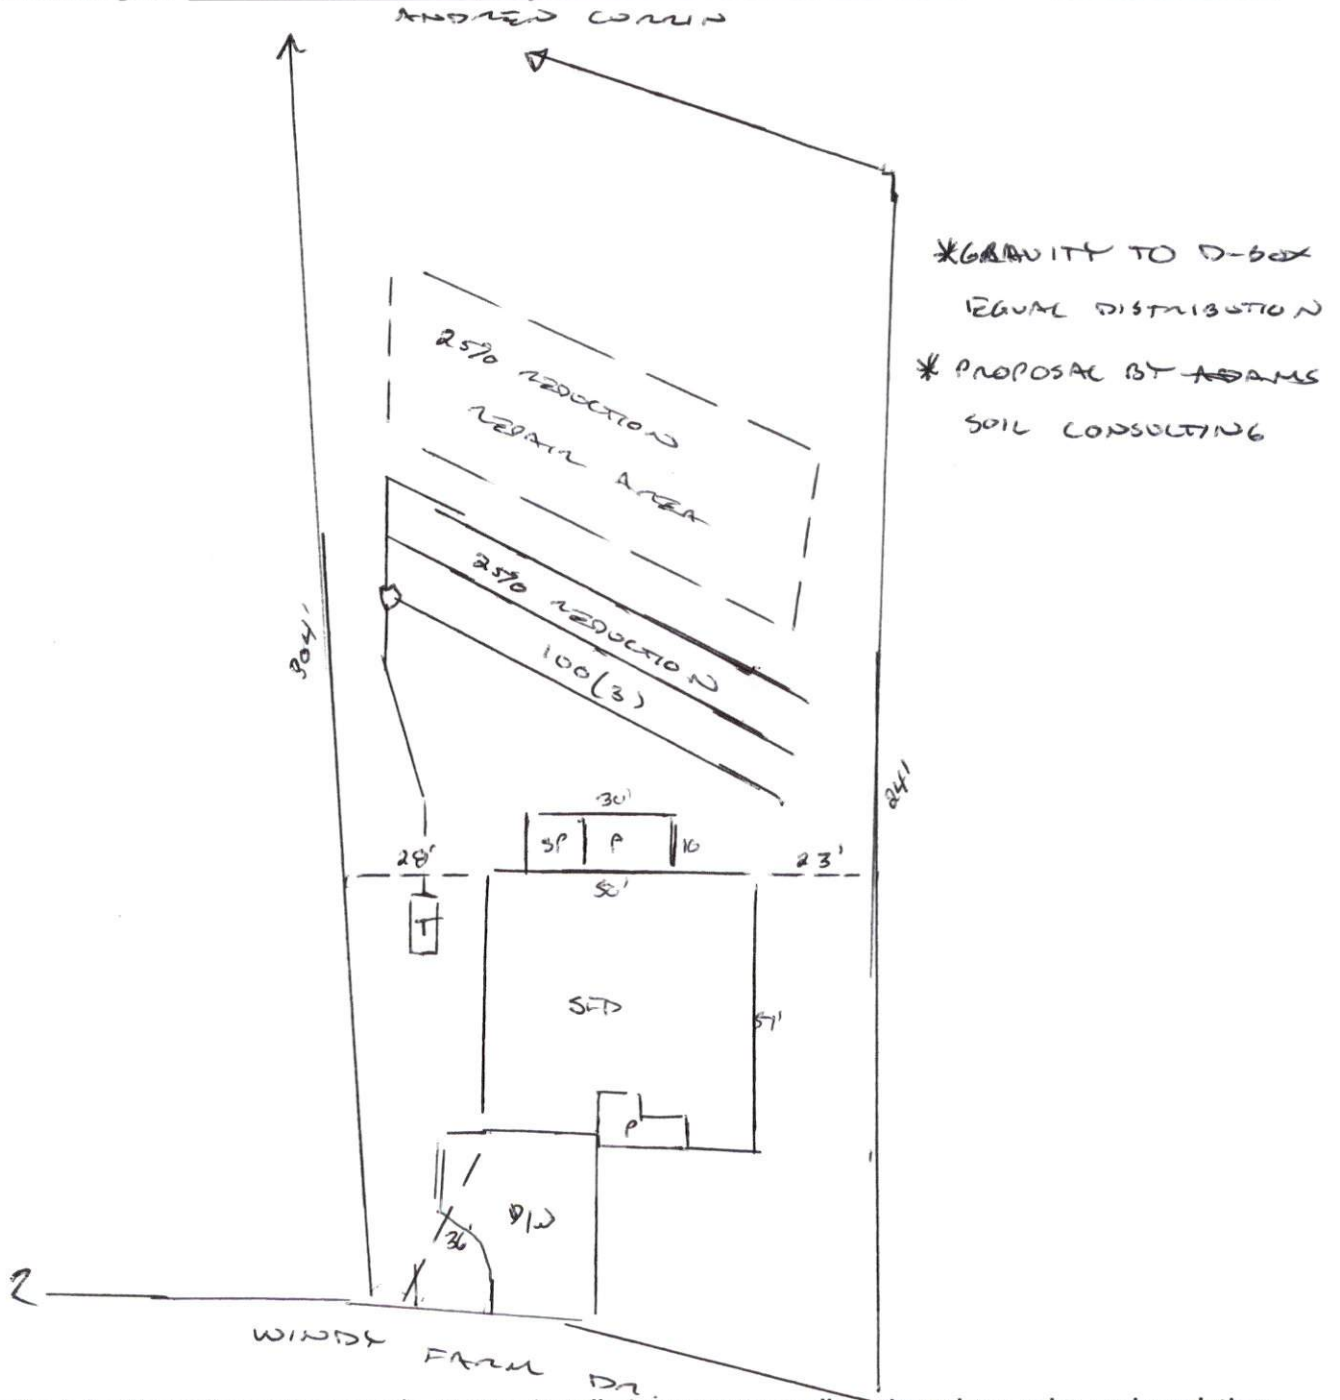 ANDREW CURRIN
*GRAVITY TO D-BOX
EQUAL DISTRIBUTION
* PROPOSAL BY ADAMS
SOIL CONSULTING
25% REDUCTION
REPAIR AREA
25% REDUCTION
100(3)
304'
241'
30'
SP P 10
28'
23'
50'
T
SFD
57'
P
D/W
36'
WINDY FARM DR